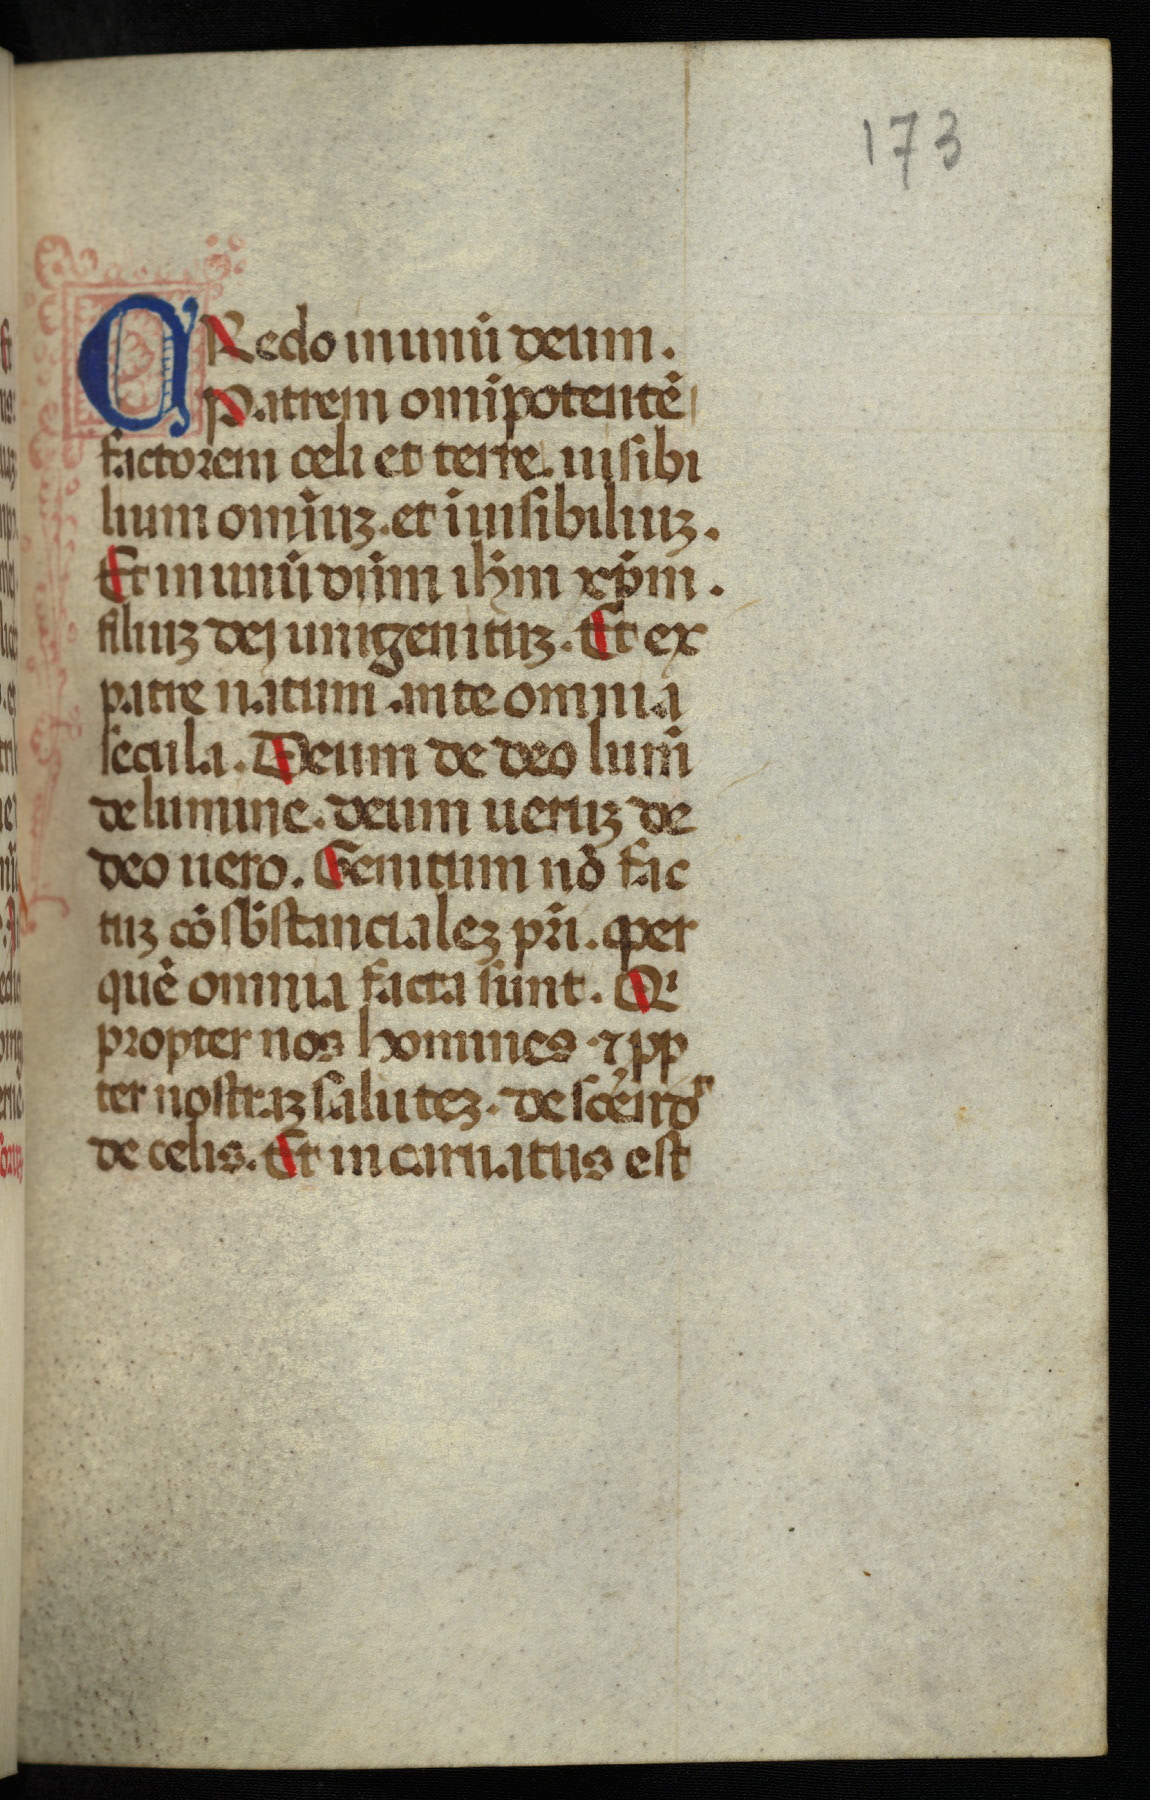 173
CRedo in unū deum.
Patrem omīpotentē
factorem celi et terre. uisibi
lium omīuʒ. et īuisibiliuʒ.
Et in unū dn̄m ih̄m xp̄m.
filiuʒ dej unigenituʒ. Et ex
patre natum ante omnia
secula. Deum de deo lum̄
de lumine. deum ueruʒ de
deo uero. Genitum nō fac
tuʒ cōsb̄stancialeʒ pr̄i. per
quē omnia facta sunt. Qi
propter nos homines ⁊ pp
ter nostraʒ saluteʒ. descēnd
de celis. Et incarnatus est